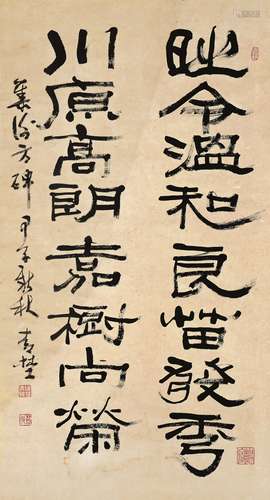 時令溫和良苗發秀
川原高朗嘉樹向榮
集衡方碑 甲子新秋 青埜